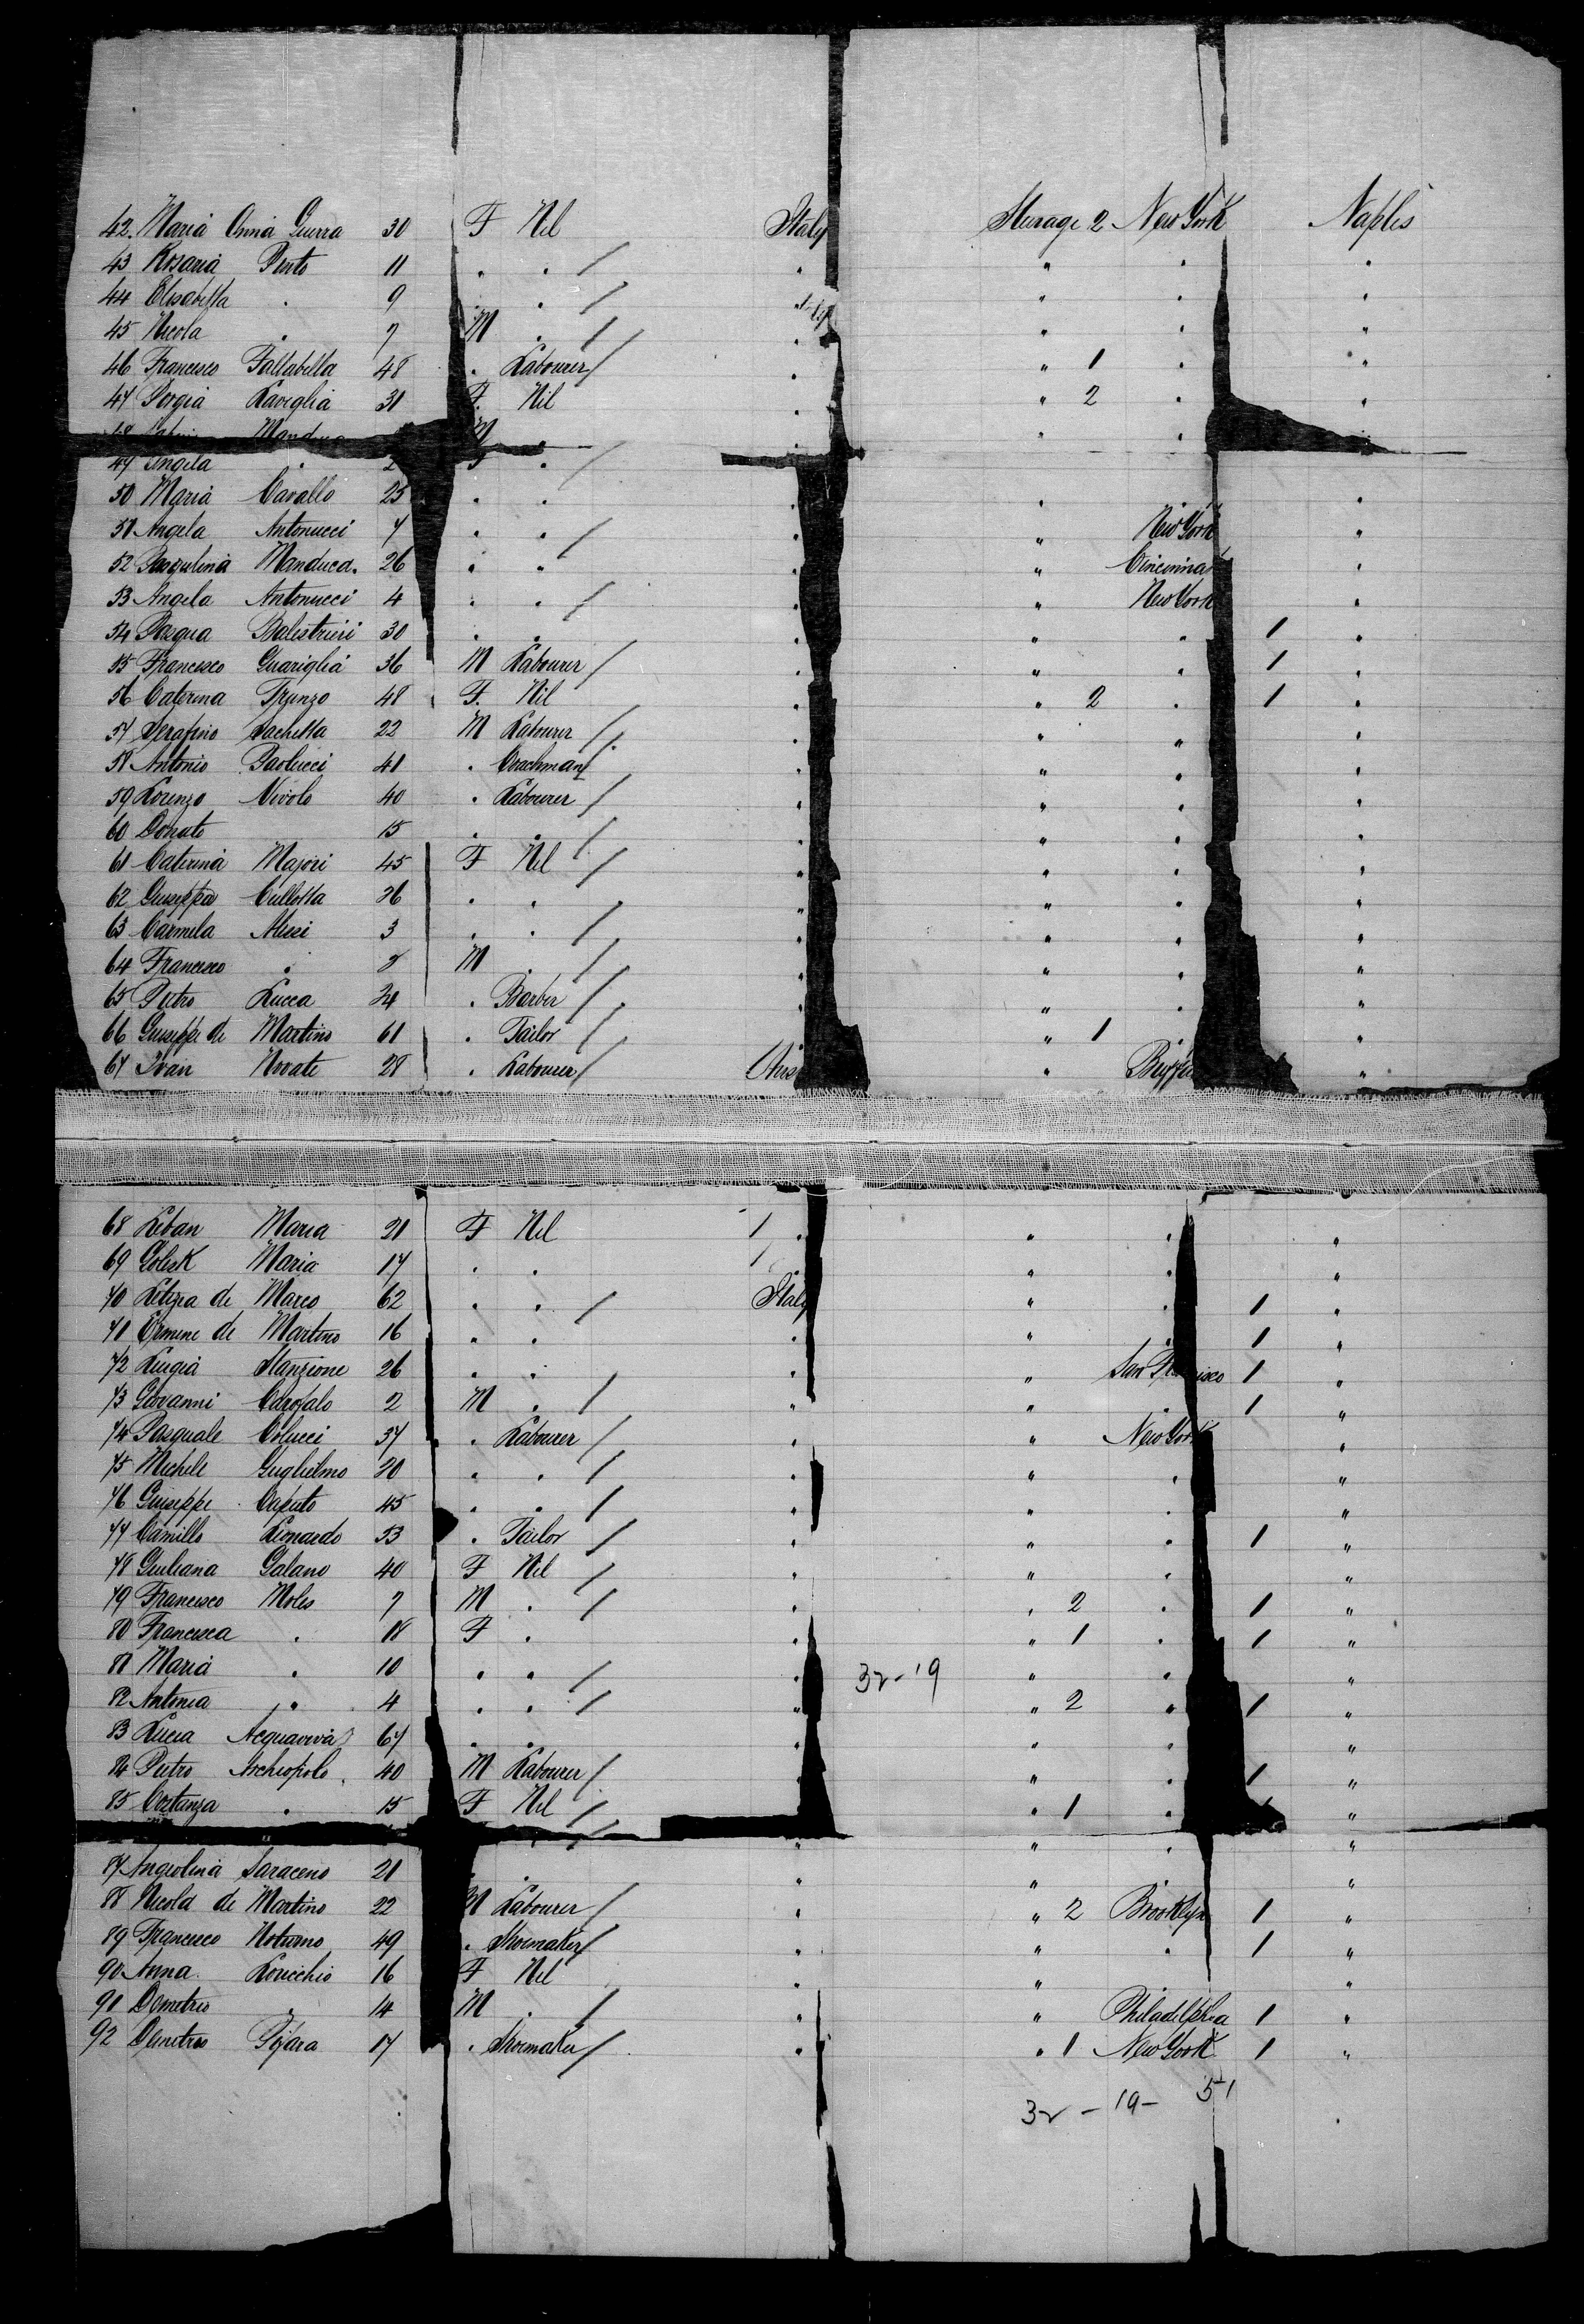 42. Maria Anna Guerra 30 F Nil Italy Sterage 2 New York Naples
43 Rosaria Pinto 11 " " / " " " "
44 Elisabetta " 9 " " / " " " "
45 Nicola " 7 M " / " " " "
46 Francesco Fallabella 48 " Labourer / " " 1 " "
47 Porgia Laveglia 31 F. Nil " " 2 " "
48 Mandu M " " " "
49 Angela " 2 F " /
50 Maria Cavallo 25 " " " " " "
51 Angela Antonucci 7 " " / " " New York "
52 Pasqulina Manduca. 26 " " " " Cincinna "
53 Angela Antonucci 4 " " / " " New York "
54 Pasqua Balestrieri 30 " " " " " 1 "
55 Francesco Guariglia 36 M Labourer / " " " 1 "
56 Caterina Trunzo 48 F. Nil " " 2 " 1 "
57 Serafino Sachetta 22 M Labourer / " " " "
58 Antonio Paolucci 41 " Coachman / " " " "
59 Lorenzo Nivolo 40 " Labourer / " " " "
60 Donato 15 " " / " " " "
61 Caterina Majori 45 F Nil / " " " "
62 Giuseppa Cullotta 26 " " / " " " "
63 Carmela Alessi 3 " " / " " " "
64 Francesco " 8 M " / " " " "
65 Pietro Lucca 24 " Barber / " " " "
66 Giuseppe de Martino 61 " Tailor / " " 1 " "
67 Ivan Novate 28 " Labourer / Aus " "
68 Leban Maria 21 F Nil / " " " "
69 Golek Maria 17 " " / " " " "
70 Letizia de Marco 62 " " / Italy " " 1 "
71 Ermine de Martino 16 " " " " " 1 "
72 Luigia Stanzione 26 " " " " San Francisco 1 "
73 Giovanni Carofalo 2 M " / " " " 1 "
74 Pasquale Colucci 37 " Labourer / " " New York "
75 Michele Guglielmo 20 " " / " " " "
76 Giuseppe Caputo 45 " " / " " " "
77 Camillo Leonardo 53 " Tailor / " " " 1 "
78 Giuliana Galano 40 F Nil / " " " "
79 Francesco Moles 7 M " / " " 2 " 1 "
80 Francesca " 18 F " " " 1 " 1 "
81 Maria " 10 " " / " 32-19 " " "
82 Antonia " 4 " " / " " 2 " 1 "
83 Lucia Acquaviva 67 " " " " " "
84 Pietro Archiopolo 40 M Labourer / " " " 1 "
85 Costanza " 15 F Nil / " 1 " "
" " / " " " "
87 Angiolina Saraceno 21 " " " "
88 Nicola de Martino 22 M Labourer / " " 2 Brooklyn 1 "
89 Francesco Noturno 49 " Shoemaker / " " " 1 "
90 Anna Loricchio 16 F Nil " " "
91 Demetrio " 14 M " / " " Philadelphia 1 "
92 Demetrio Pizara 17 " Shoemaker / " " 1 New York 1 "
32 - 19 - 51